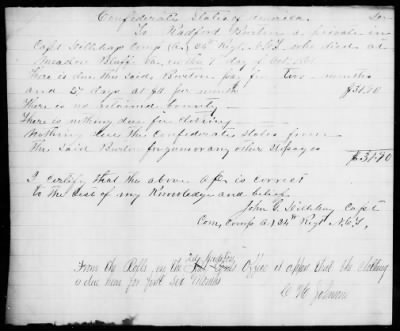 Confederate States of America
To Radford Burton a private in
Capt Company A, 24th Regt, who died at
Meadow Bluff Va, on the 7 day of Oct 1861
There is due the said Burton pay for two months
and 27 days at $11 per month $31.90
There is no retained bounty
There is nothing due for clothing
Nothing due the Confederate States from
The Said Burton for gunnery other
$31.90
I certify that the above a/c is correct
to the best of my Knowledge and belief
John G. Capt
Com, Comp A, 24th Regt
From the Rolls, in the Office it appears that the clothing
is due him for first six months